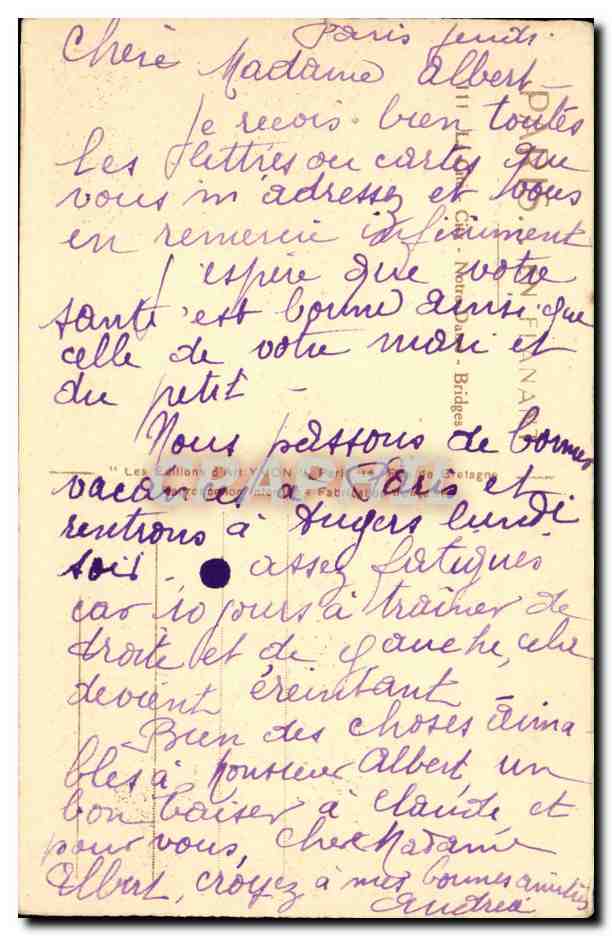 Paris jeudi.
Chère Madame Albert
Je reçois bien toutes
les lettres ou cartes que
vous m'adressez et vous
en remercie infiniment
J'espère que votre
santé est bonne ainsi que
celle de votre mari et
du petit -
Nous passons de bonnes
vacances à Paris et
rentrons à Angers lundi
soir - assez fatigués
car 10 jours à traîner de
droite et de gauche, cela
devient éreintant
Bien des choses aima-
bles à Monsieur Albert, un
bon baiser à Claude et
pour vous, chère Madame
Albert, croyez à mes bonnes amitiés
Andrée
PARIS EN FLANANT
Notre-Dame - Bridges
"Les Editions d'Art YVON"